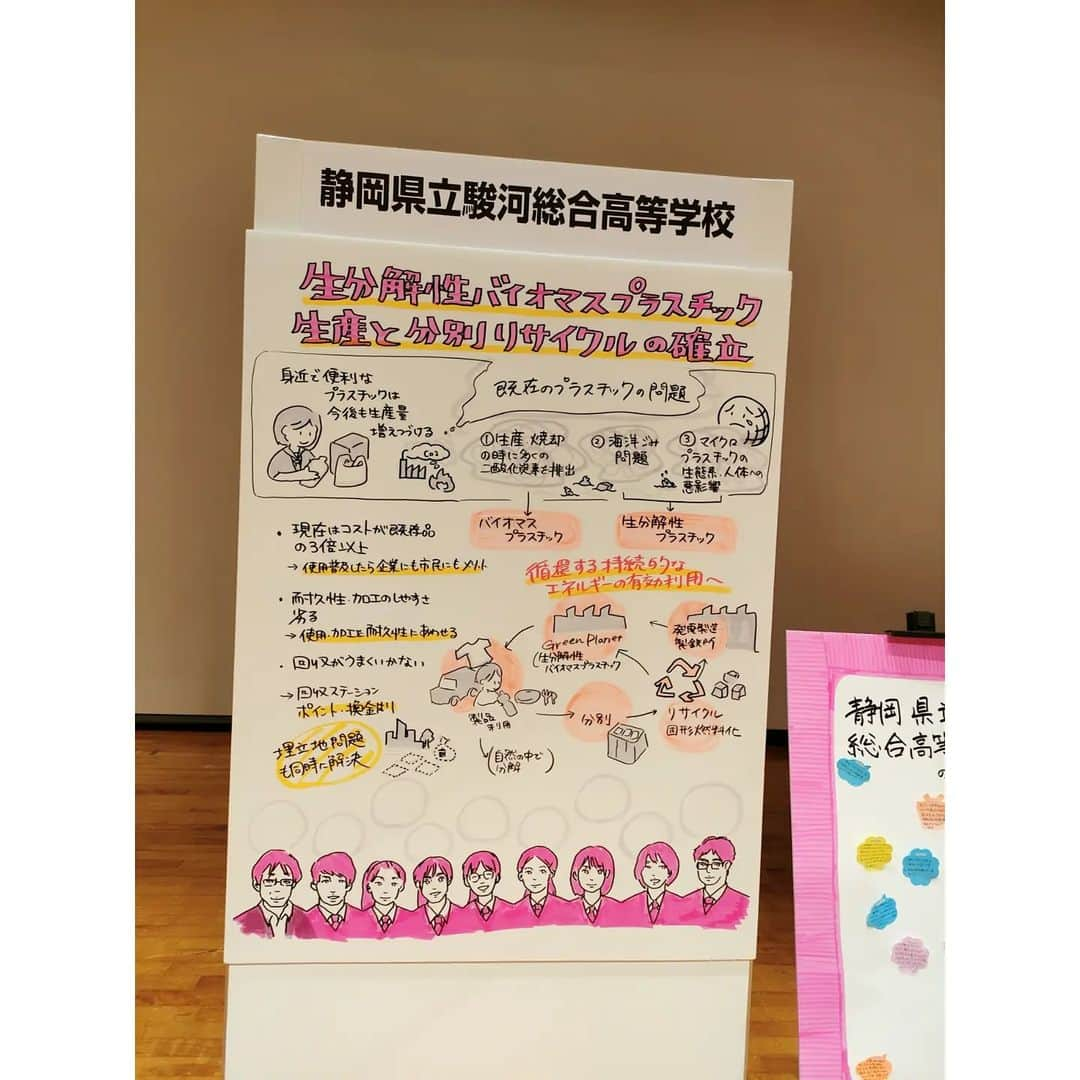 静岡県立駿河総合高等学校
生分解性バイオマスプラスチック
生産と分別リサイクルの確立
身近で便利な
プラスチックは
今後も生産量
増えつづける
既存のプラスチックの問題
CO2
①生産・焼却
の時に多くの
二酸化炭素を排出
②海洋ごみ
問題
③マイクロ
プラスチックの
生態系・人体への
悪影響
バイオマス
プラスチック
生分解性
プラスチック
・現在はコストが既存品
の3倍以上
→使用普及したら企業にも市民にもメリット
・耐久性・加工のしやすさ
劣る
→使用・加工を耐久性にあわせる
・回収がうまくいかない
→回収ステーション
ポイント・換金制
埋立地問題
も同時に解決
循環する持続的な
エネルギーの有効利用へ
Green Planet
(生分解性
バイオマスプラスチック
製鉄所
製品
利用
分別
リサイクル
固形燃料化
(自然の中で
分解)
静岡県立
総合高等
の